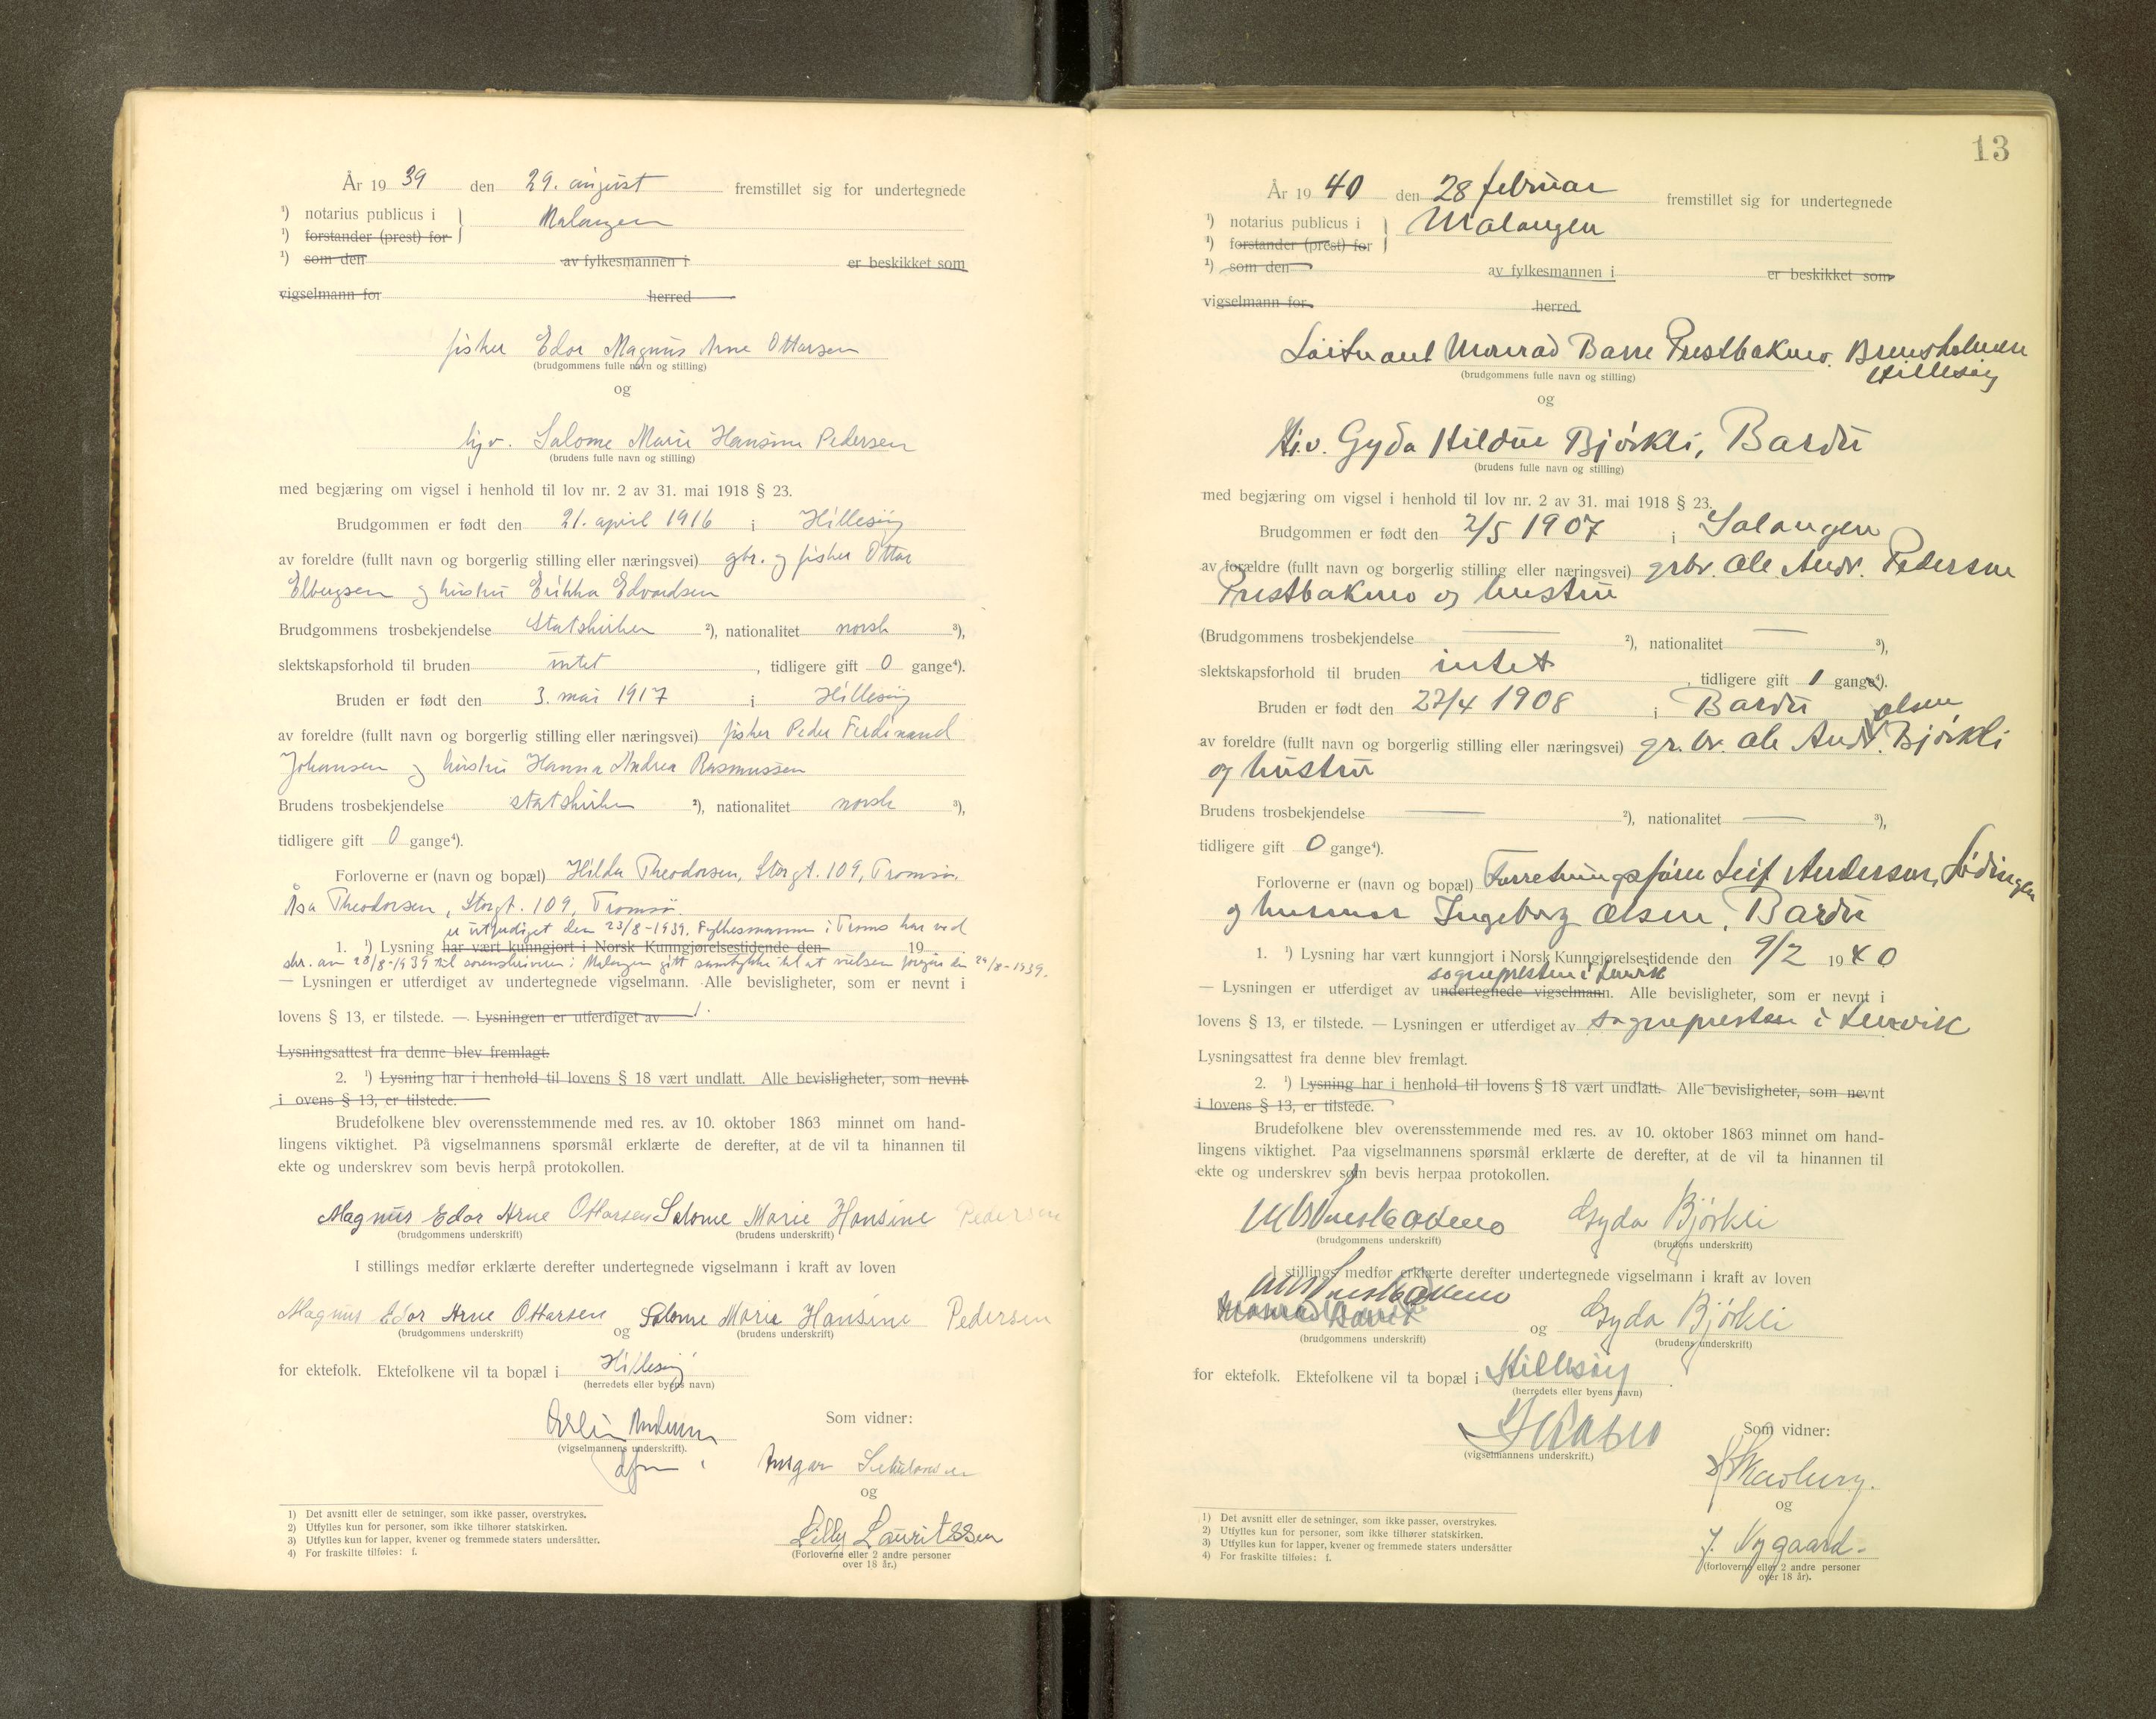 År 19 39 den 29. august fremstillet sig for undertegnede
¹) notarius publicus i Malangen
¹) forstander (prest) for
¹) som den av fylkesmannen i er beskikket som
vigselmann for herred
fisker Edor Magnus Arne Ottarsen
(brudgommens fulle navn og stilling)
og
hjv. Salome Marie Hansine Pedersen
(brudens fulle navn og stilling)
med begjæring om vigsel i henhold til lov nr. 2 av 31. mai 1918 § 23.
Brudgommen er født den 21. april 1916 i Hillesøy
av foreldre (fullt navn og borgerlig stilling eller næringsvei) gbr. og fisker Ottar
Elbergsen og hustru Erikka Edvardsen
Brudgommens trosbekjendelse statskirken ²), nationalitet norsk ³),
slektskapsforhold til bruden intet, tidligere gift 0 gange⁴).
Bruden er født den 3. mai 1917 i Hillesøy
av foreldre (fullt navn og borgerlig stilling eller næringsvei) fisker Peder Ferdinand
Johansen og hustru Hanna Andrea Rasmussen
Brudens trosbekjendelse statskirken ²), nationalitet norsk ³),
tidligere gift 0 gange⁴).
Forloverne er (navn og bopæl) Hilda Theodorsen, Storgt. 109, Tromsø.
Åsa Theodorsen, Storgt. 109, Tromsø.
er utferdiget den 23/8-1939. Fylkesmannen i Troms har ved
1. ¹) Lysning har vært kunngjort i Norsk Kunngjørelsestidende den 19
skr. av 28/8-1939 til sorenskriveren i Malangen gitt samtykke til at vielsen foregår den 29/8-1939.
— Lysningen er utferdiget av undertegnede vigselmann. Alle bevisligheter, som er nevnt i
lovens § 13, er tilstede. — Lysningen er utferdiget av
Lysningsattest fra denne blev fremlagt.
2. ¹) Lysning har i henhold til lovens § 18 vært undlatt. Alle bevisligheter, som nevnt
i ovens § 13, er tilstede.
Brudefolkene blev overensstemmende med res. av 10. oktober 1863 minnet om hand-
lingens viktighet. På vigselmannens spørsmål erklærte de derefter, at de vil ta hinannen til
ekte og underskrev som bevis herpå protokollen.
Magnus Edor Arne Ottarsen Salome Marie Hansine Pedersen
(brudgommens underskrift) (brudens underskrift)
I stillings medfør erklærte derefter undertegnede vigselmann i kraft av loven
Magnus Edor Arne Ottarsen og Salome Marie Hansine Pedersen
(brudgommens underskrift) (brudens underskrift)
for ektefolk. Ektefolkene vil ta bopæl i Hillesøy
(herredets eller byens navn)
Som vidner:
(vigselmannens underskrift).
og
Lilly Lauritssen
(Forloverne eller 2 andre personer
over 18 år.)
1) Det avsnitt eller de setninger, som ikke passer, overstrykes.
2) Utfylles kun for personer, som ikke tilhører statskirken.
3) Utfylles kun for lapper, kvener og fremmede staters undersåtter.
4) For fraskilte tilføies: f.
13
År 19 40 den 28 februar fremstillet sig for undertegnede
¹) notarius publicus i Malangen
¹) forstander (prest) for
¹) som den av fylkesmannen i er beskikket som
vigselmann for herred
Løitnant Monrad Barre Prestbakmo. Brensholmen
Hillesøy
(brudgommens fulle navn og stilling)
og
Hj.v. Gyda Hildur Bjørkli, Bardu
(brudens fulle navn og stilling)
med begjæring om vigsel i henhold til lov nr. 2 av 31. mai 1918 § 23.
Brudgommen er født den 2/5 1907 i Salangen
av forældre (fullt navn og borgerlig stilling eller næringsvei) grbr. Ole Andr. Pedersen
Prestbakmo og hustru
(Brudgommens trosbekjendelse — ²), nationalitet — ³),
slektskapsforhold til bruden intet, tidligere gift 1 gange⁴).
Bruden er født den 27/4 1908 i Bardu
olsen
av foreldre (fullt navn og borgerlig stilling eller næringsvei) gr.br. Ole Andr. Bjørkli
og hustru
Brudens trosbekjendelse — ²), nationalitet — ³),
tidligere gift 0 gange⁴).
Forloverne er (navn og bopæl) Forretningsfører Leif Andersen, Lødingen
og husmor Ingeborg Olsen, Bardu
1. ¹) Lysning har vært kunngjort i Norsk Kunngjørelsestidende den 9/2 1940
sognepresten i Lenvik
— Lysningen er utferdiget av undertegnede vigselmann. Alle bevisligheter, som er nevnt i
lovens § 13, er tilstede. — Lysningen er utferdiget av sognepresten i Lenvik
Lysningsattest fra denne blev fremlagt.
2. ¹) Lysning har i henhold til lovens § 18 vært undlatt. Alle bevisligheter, som nevnt
i lovens § 13, er tilstede.
Brudefolkene blev overensstemmende med res. av 10. oktober 1863 minnet om hand-
lingens viktighet. Paa vigselmannens spørsmål erklærte de derefter, at de vil ta hinannen til
ekte og underskrev som bevis herpaa protokollen.
MB Prestbakmo Gyda Bjørkli
(brudgommens underskrift) (brudens underskrift)
I stillings medfør erklærte derefter undertegnede vigselmann i kraft av loven
MB Prestbakmo
og Gyda Bjørkli
(brudgommens underskrift) (brudens underskrift)
for ektefolk. Ektefolkene vil ta bopæl i Hillesøy
(herredets eller byens navn)
Som vidner:
(vigselmannens underskrift.)
og
J. Nygaard
(forloverne eller 2 andre personer
over 18 år).
1) Det avsnitt eller de setninger, som ikke passer, overstrykes.
2) Utfylles kun for personer, som ikke tilhører statskirken.
3) Utfylles kun for lapper, kvener og fremmede staters undersåtter
4) For fraskilte tilføies: f.